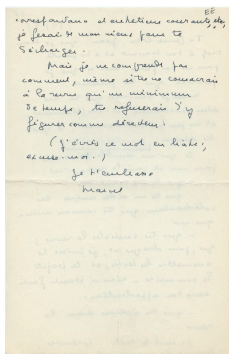 correspondance et entretiens courants, etc,
je ferai de mon mieux pour te
décharger.
Mais je ne comprends pas
comment, même si tu ne consacrais
à la revue qu'un minimum
de temps, tu refuserais d'y
figurer comme directeur.
(J'écris ce mot en hâte ;
excuse-moi.)
Je t'embrasse